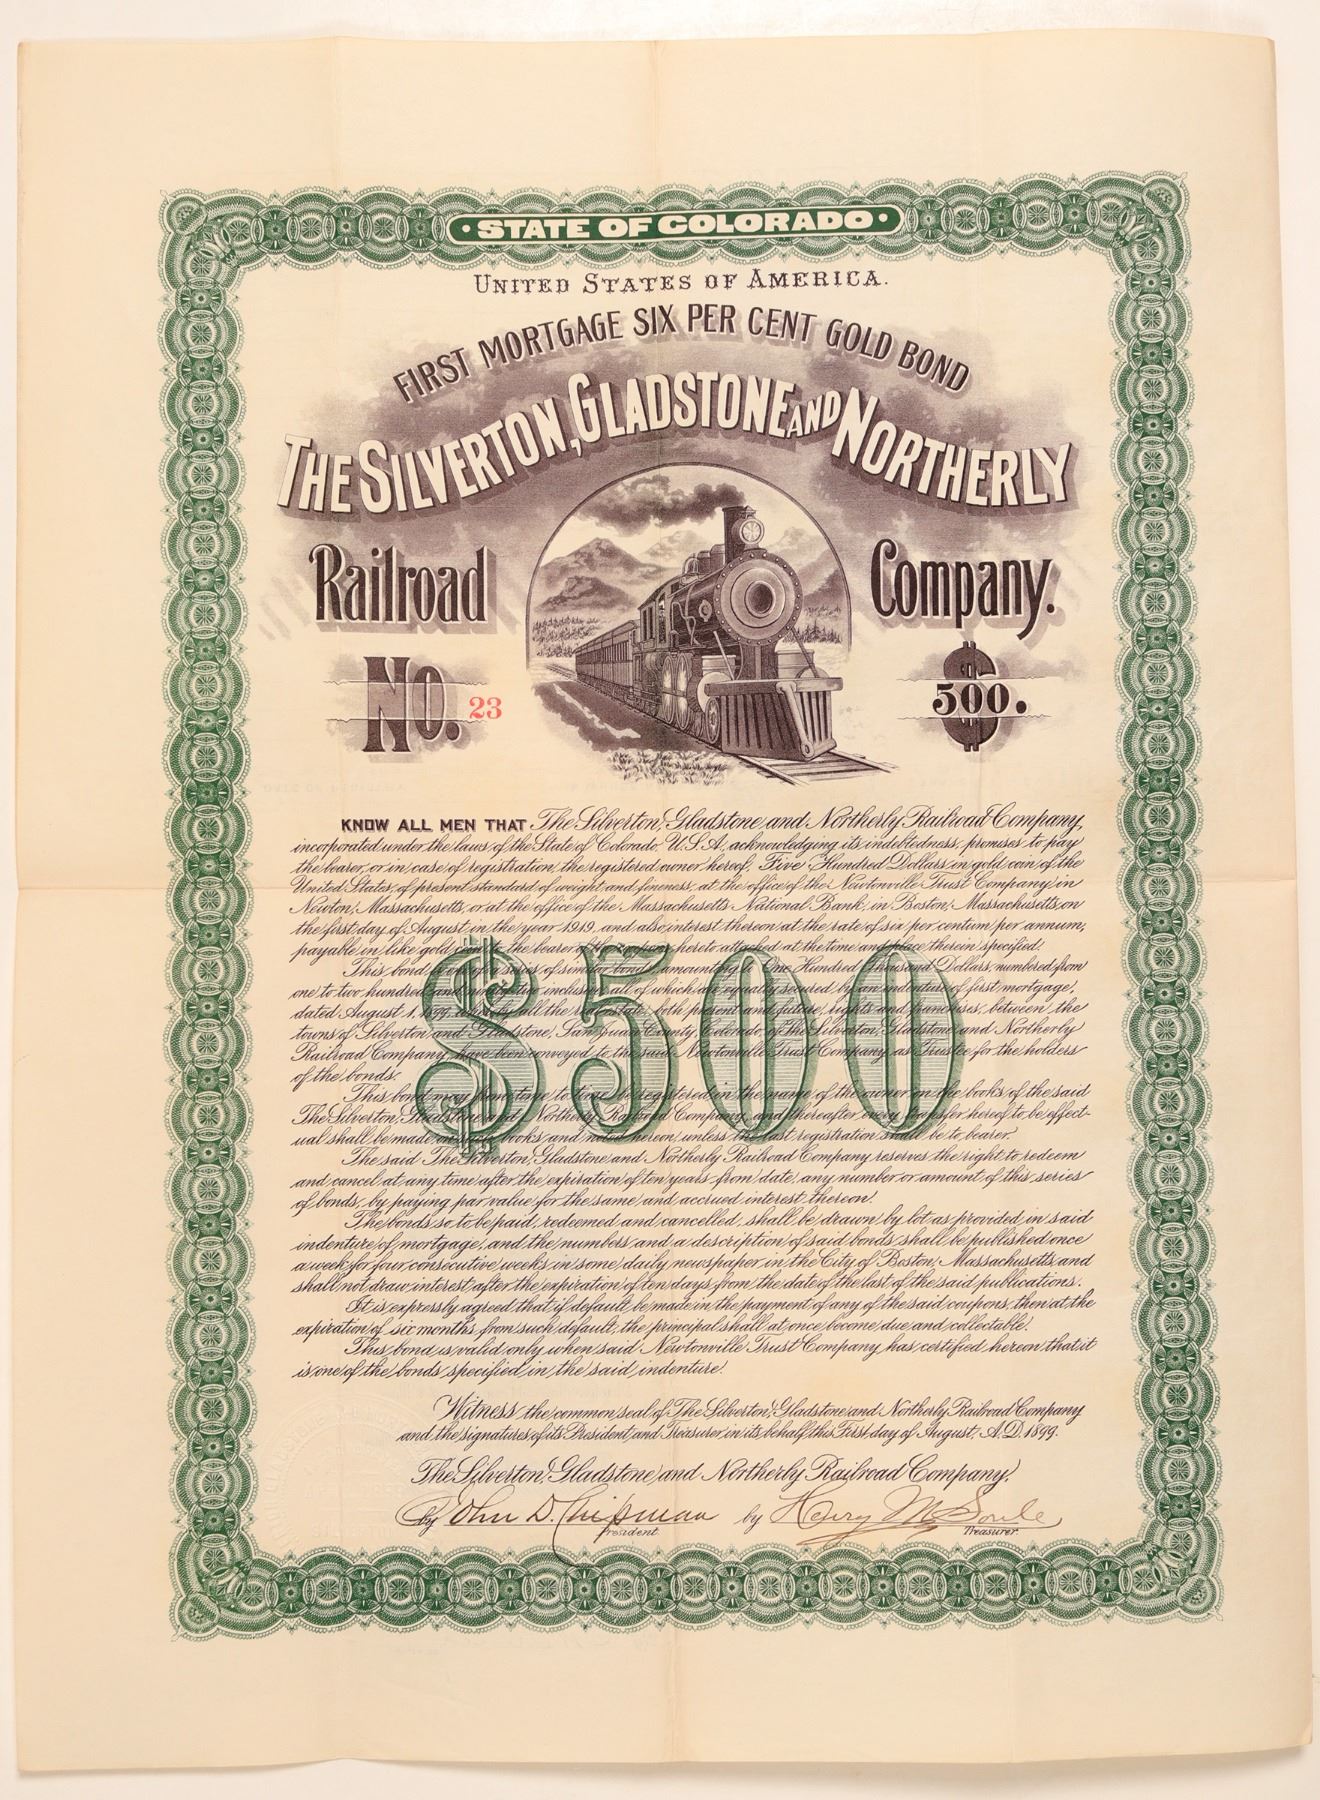 · STATE OF COLORADO ·
UNITED STATES OF AMERICA.
FIRST MORTGAGE SIX PER CENT GOLD BOND
THE SILVERTON, GLADSTONE AND NORTHERLY
Railroad Company.
No. 23 $500.
KNOW ALL MEN THAT The Silverton, Gladstone and Northerly Railroad Company,
incorporated under the laws of the State of Colorado U.S.A. acknowledging its indebtedness, promises to pay
the bearer, or in case of registration, the registered owner hereof, Five Hundred Dollars in gold coin of the
United States, of present standard of weight and fineness, at the office of the Newtonville Trust Company in
Newton, Massachusetts, or at the office of the Massachusetts National Bank, in Boston, Massachusetts, on
the first day of August in the year 1919, and also interest thereon at the rate of six per centum per annum,
payable in like gold coin to the bearer of the coupons hereto attached at the time and place therein specified.
This bond is one of a series of similar bonds amounting to One Hundred Thousand Dollars, numbered from
one to two hundred and ninety two inclusive, all of which are equally secured by an indenture of first mortgage,
dated August 1, 1899, whereby all the real estate, both present and future, rights and franchises, between the
towns of Silverton and Gladstone, San Juan County Colorado, of the Silverton, Gladstone and Northerly
Railroad Company, have been conveyed to the said Newtonville Trust Company as Trustee for the holders
of the bonds.
This bond may from time to time be registered in the name of the owner on the books of the said
The Silverton, Gladstone and Northerly Railroad Company and thereafter every transfer hereof to be effect-
ual shall be made on said books and noted hereon, unless the last registration shall be to bearer.
$500
The said The Silverton, Gladstone and Northerly Railroad Company reserves the right to redeem
and cancel at any time after the expiration of ten years from date, any number or amount of this series
of bonds, by paying par value for the same and accrued interest thereon.
The bonds so to be paid, redeemed and cancelled, shall be drawn by lot as provided in said
indenture of mortgage, and the numbers and a description of said bonds shall be published once
a week for four consecutive weeks in some daily newspaper in the City of Boston, Massachusetts, and
shall not draw interest after the expiration of ten days from the date of the last of the said publications.
It is expressly agreed that if default be made in the payment of any of the said coupons, then at the
expiration of six months from such default, the principal shall at once become due and collectable.
This bond is valid only when said Newtonville Trust Company has certified hereon that it
is one of the bonds specified in the said indenture.
Witness the common seal of The Silverton, Gladstone and Northerly Railroad Company
and the signatures of its President and Treasurer, in its behalf this First day of August, A.D. 1899.
The Silverton, Gladstone and Northerly Railroad Company.
By John D. Chipman by Henry M Soule
President Treasurer